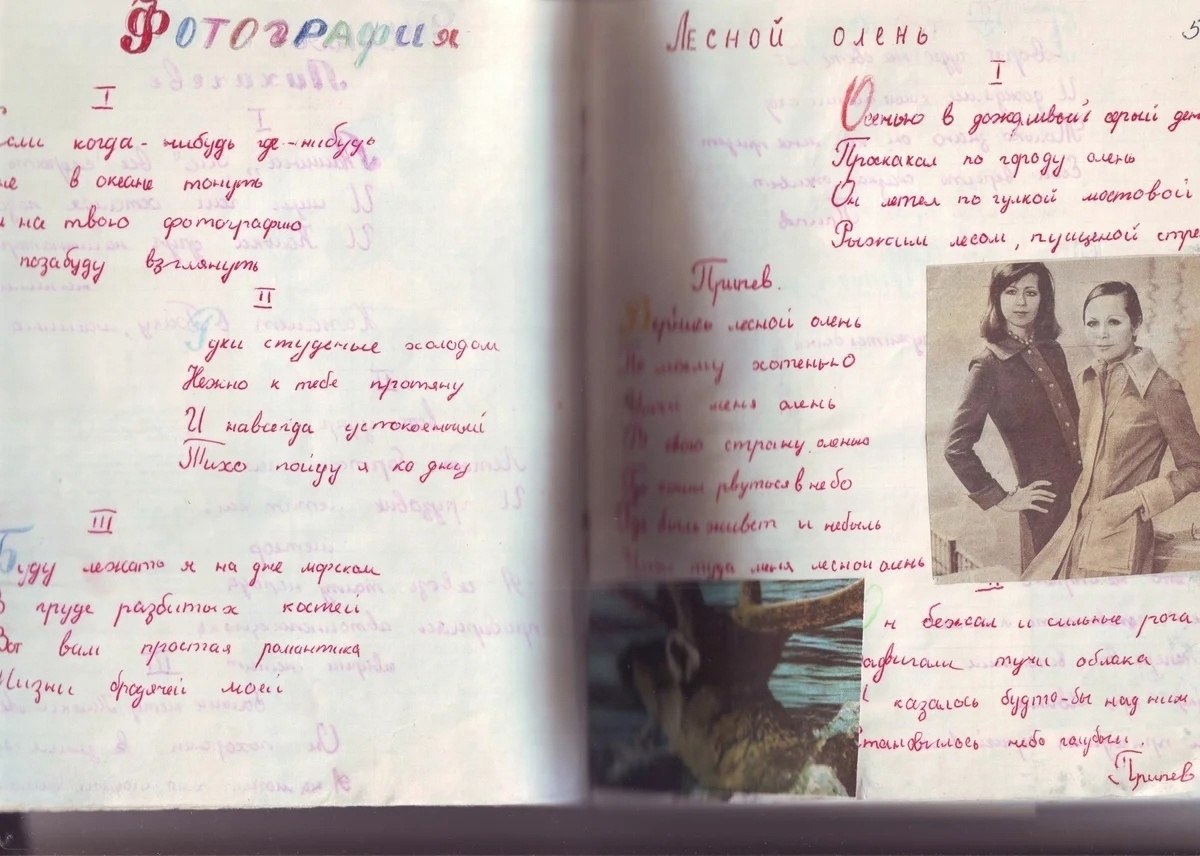 Фотография
I
сли когда-нибудь где-нибудь
не в океане тонуть
и на твою фотографию
позабуду взглянуть
II
Руки студеные холодом
Нежно к тебе протяну
И навсегда успокоенный
Тихо пойду я ко дну
III
Буду лежать я на дне морском
В груде разбитых костей
Вот вам простая романтика
Жизни бродячей моей
Лесной олень
5
I
Осенью в дождливый серый ден
Проскакал по городу олень
Он летел по гулкой мостовой
Рыжим лесом, пущеной стре
Припев.
Вернись лесной олень
По моему хотенью
Умчи меня олень
В свою страну оленью
Где сосны рвуться в небо
Где быль живет и небыль
Умчи туда меня лесной олень
II
Он бежал и сильные рога
адивали тучи облака
И казалось будто-бы над ним
становилось небо голубым.
Припев